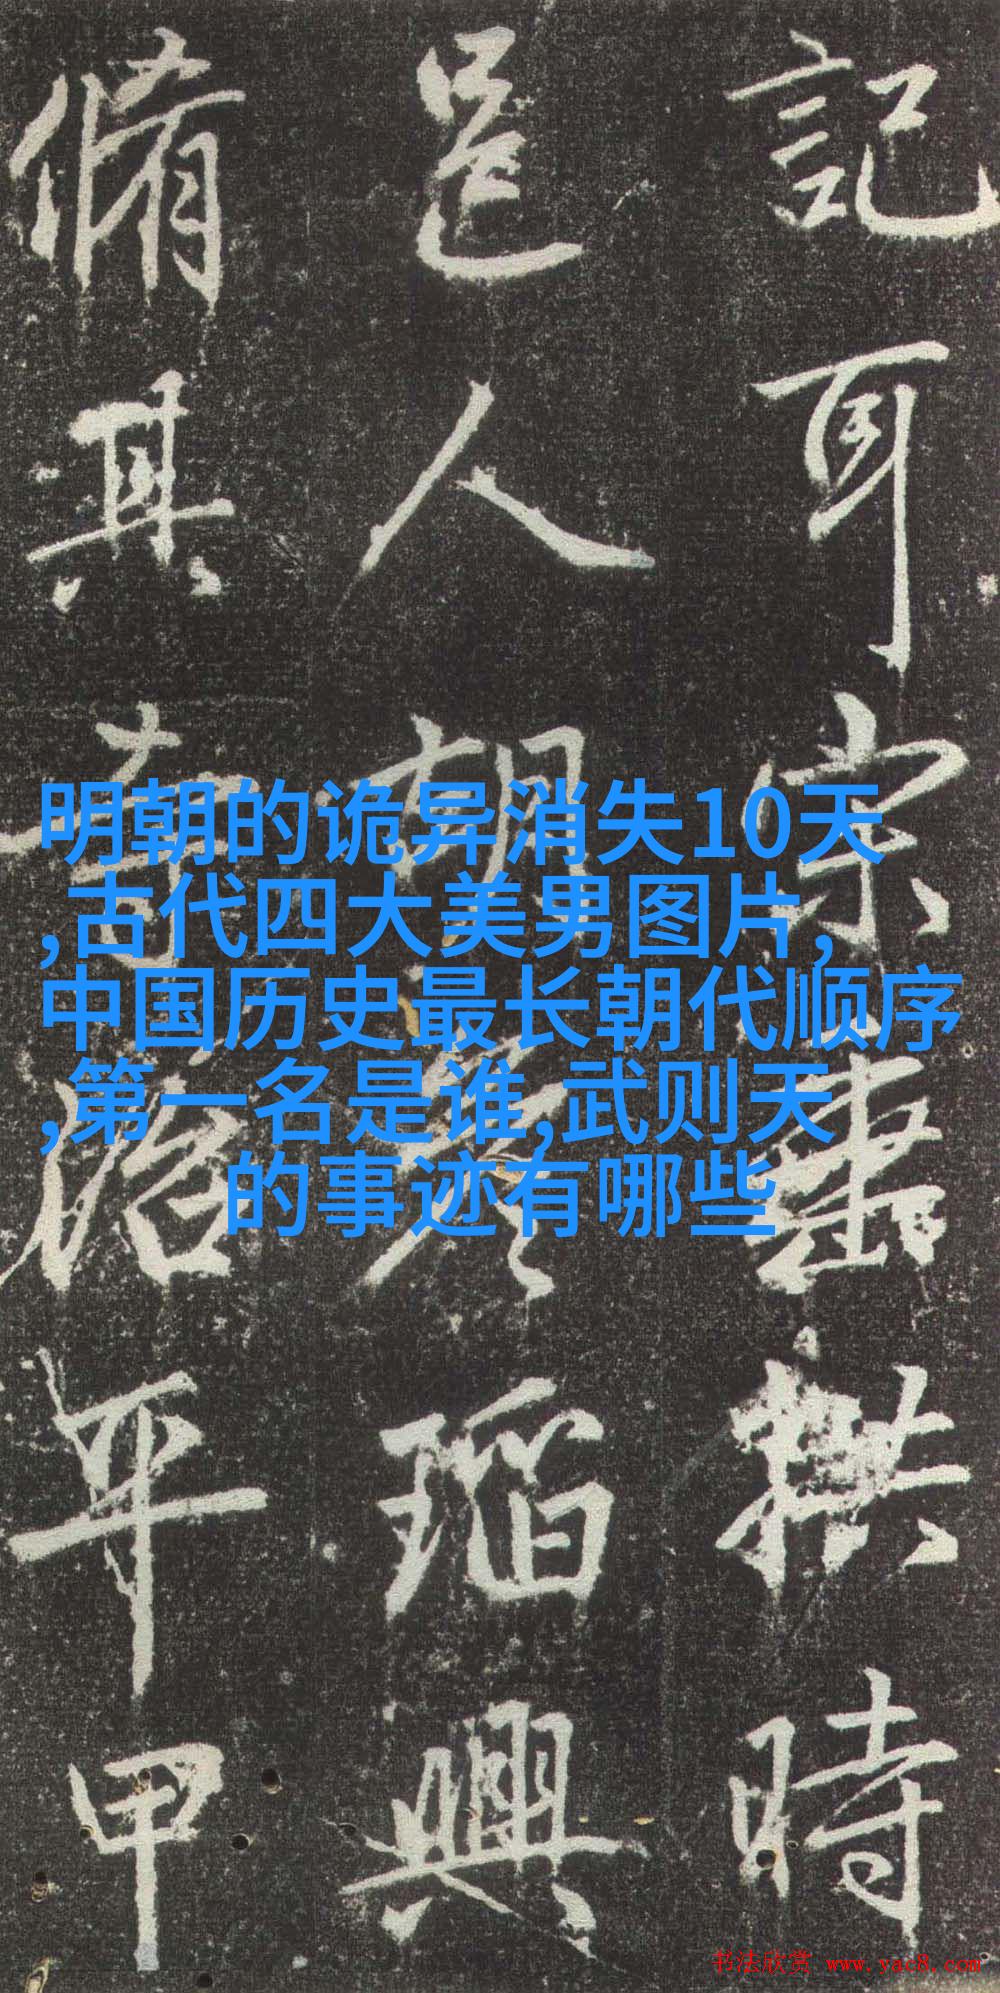 記耳宗拱時
邑人胡瑫興
脩其寺治平甲
明朝的诡异消失10天
,古代四大美男图片,
中国历史最长朝代顺序
,第一名是谁,武则天
的事迹有哪些
书法欣赏 www.yac8.com